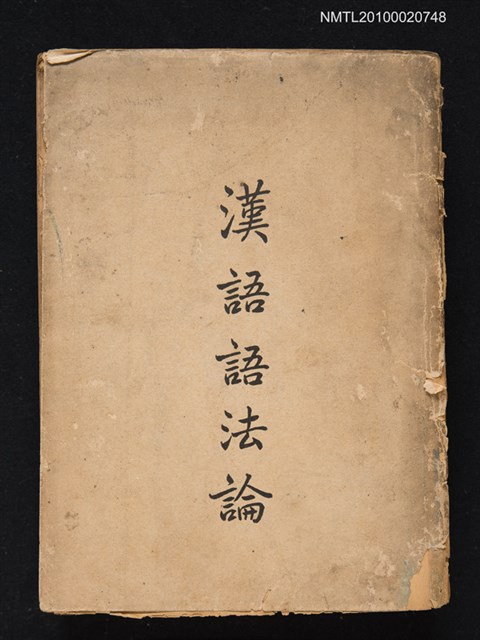 NMTL20100020748
漢語語法論